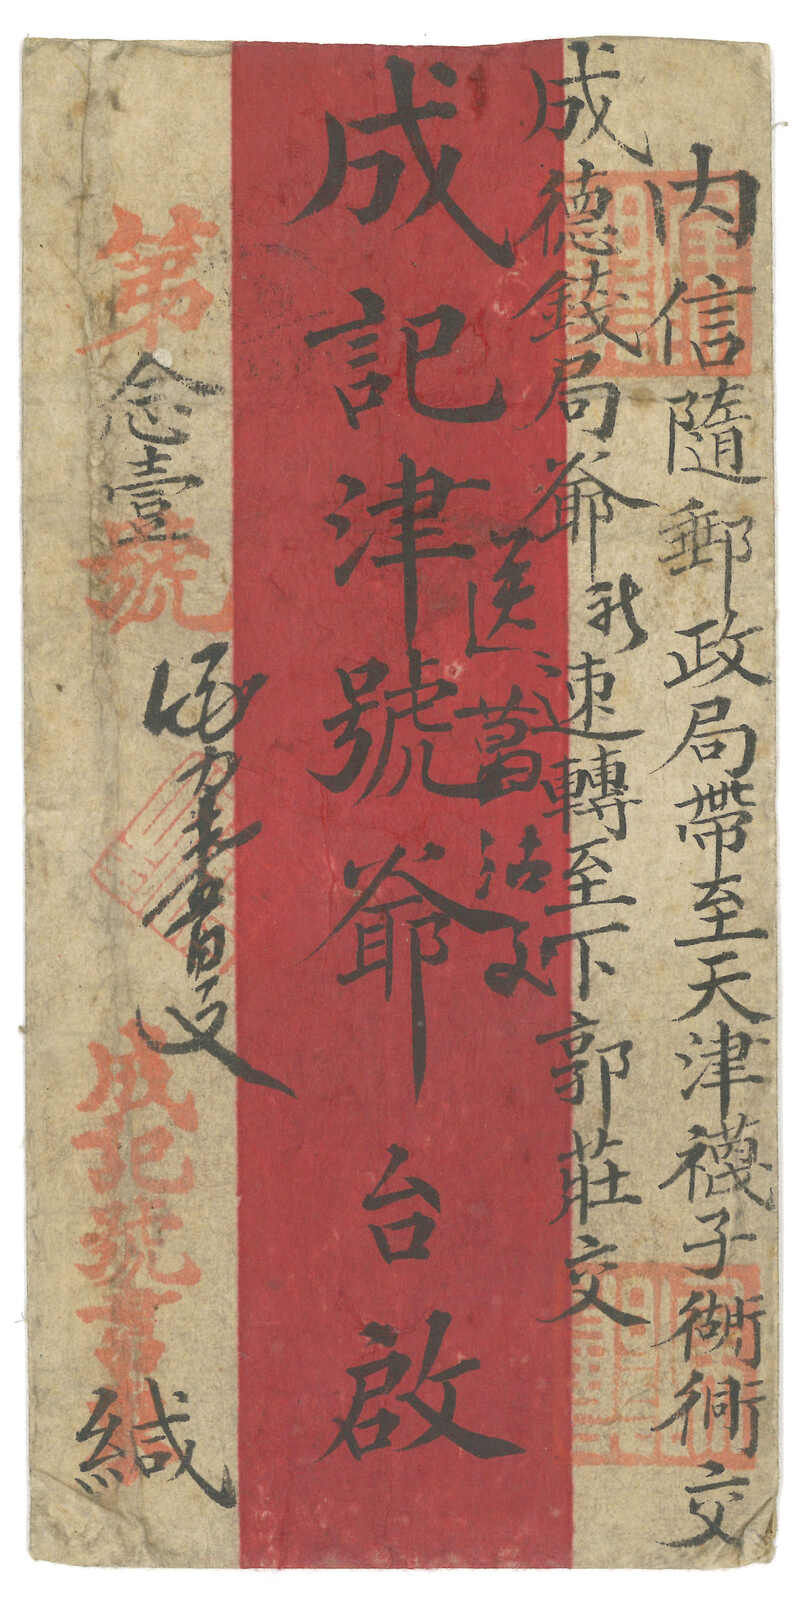 內信隨郵政局帶至天津襪子衚衕交
成德錢局爺
速轉至下郭莊交
送葛沽交
成記津號爺台啟
第念壹號
成記號書
緘